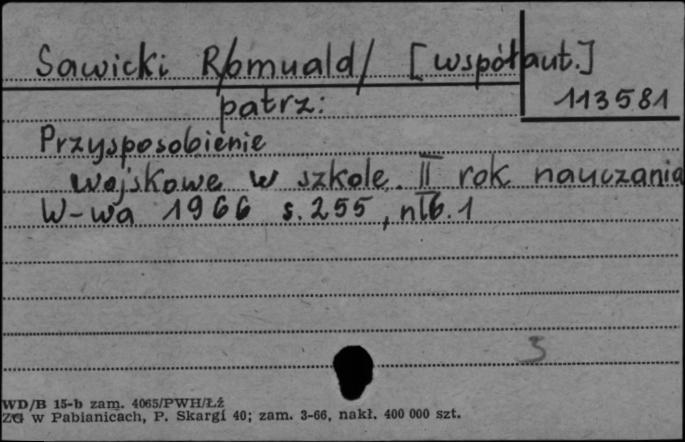 Sawicki R/omuald/ [współaut.]
113581
patrz:
Przysposobienie
wojskowe w szkole. II rok nauczania
W-wa 1966 s. 255, nlb. 1
3
WD/B 15-b zam. 4065/PWH/Łź
ZG w Pabianicach, P. Skargi 40; zam. 3-66, nakł. 400 000 szt.